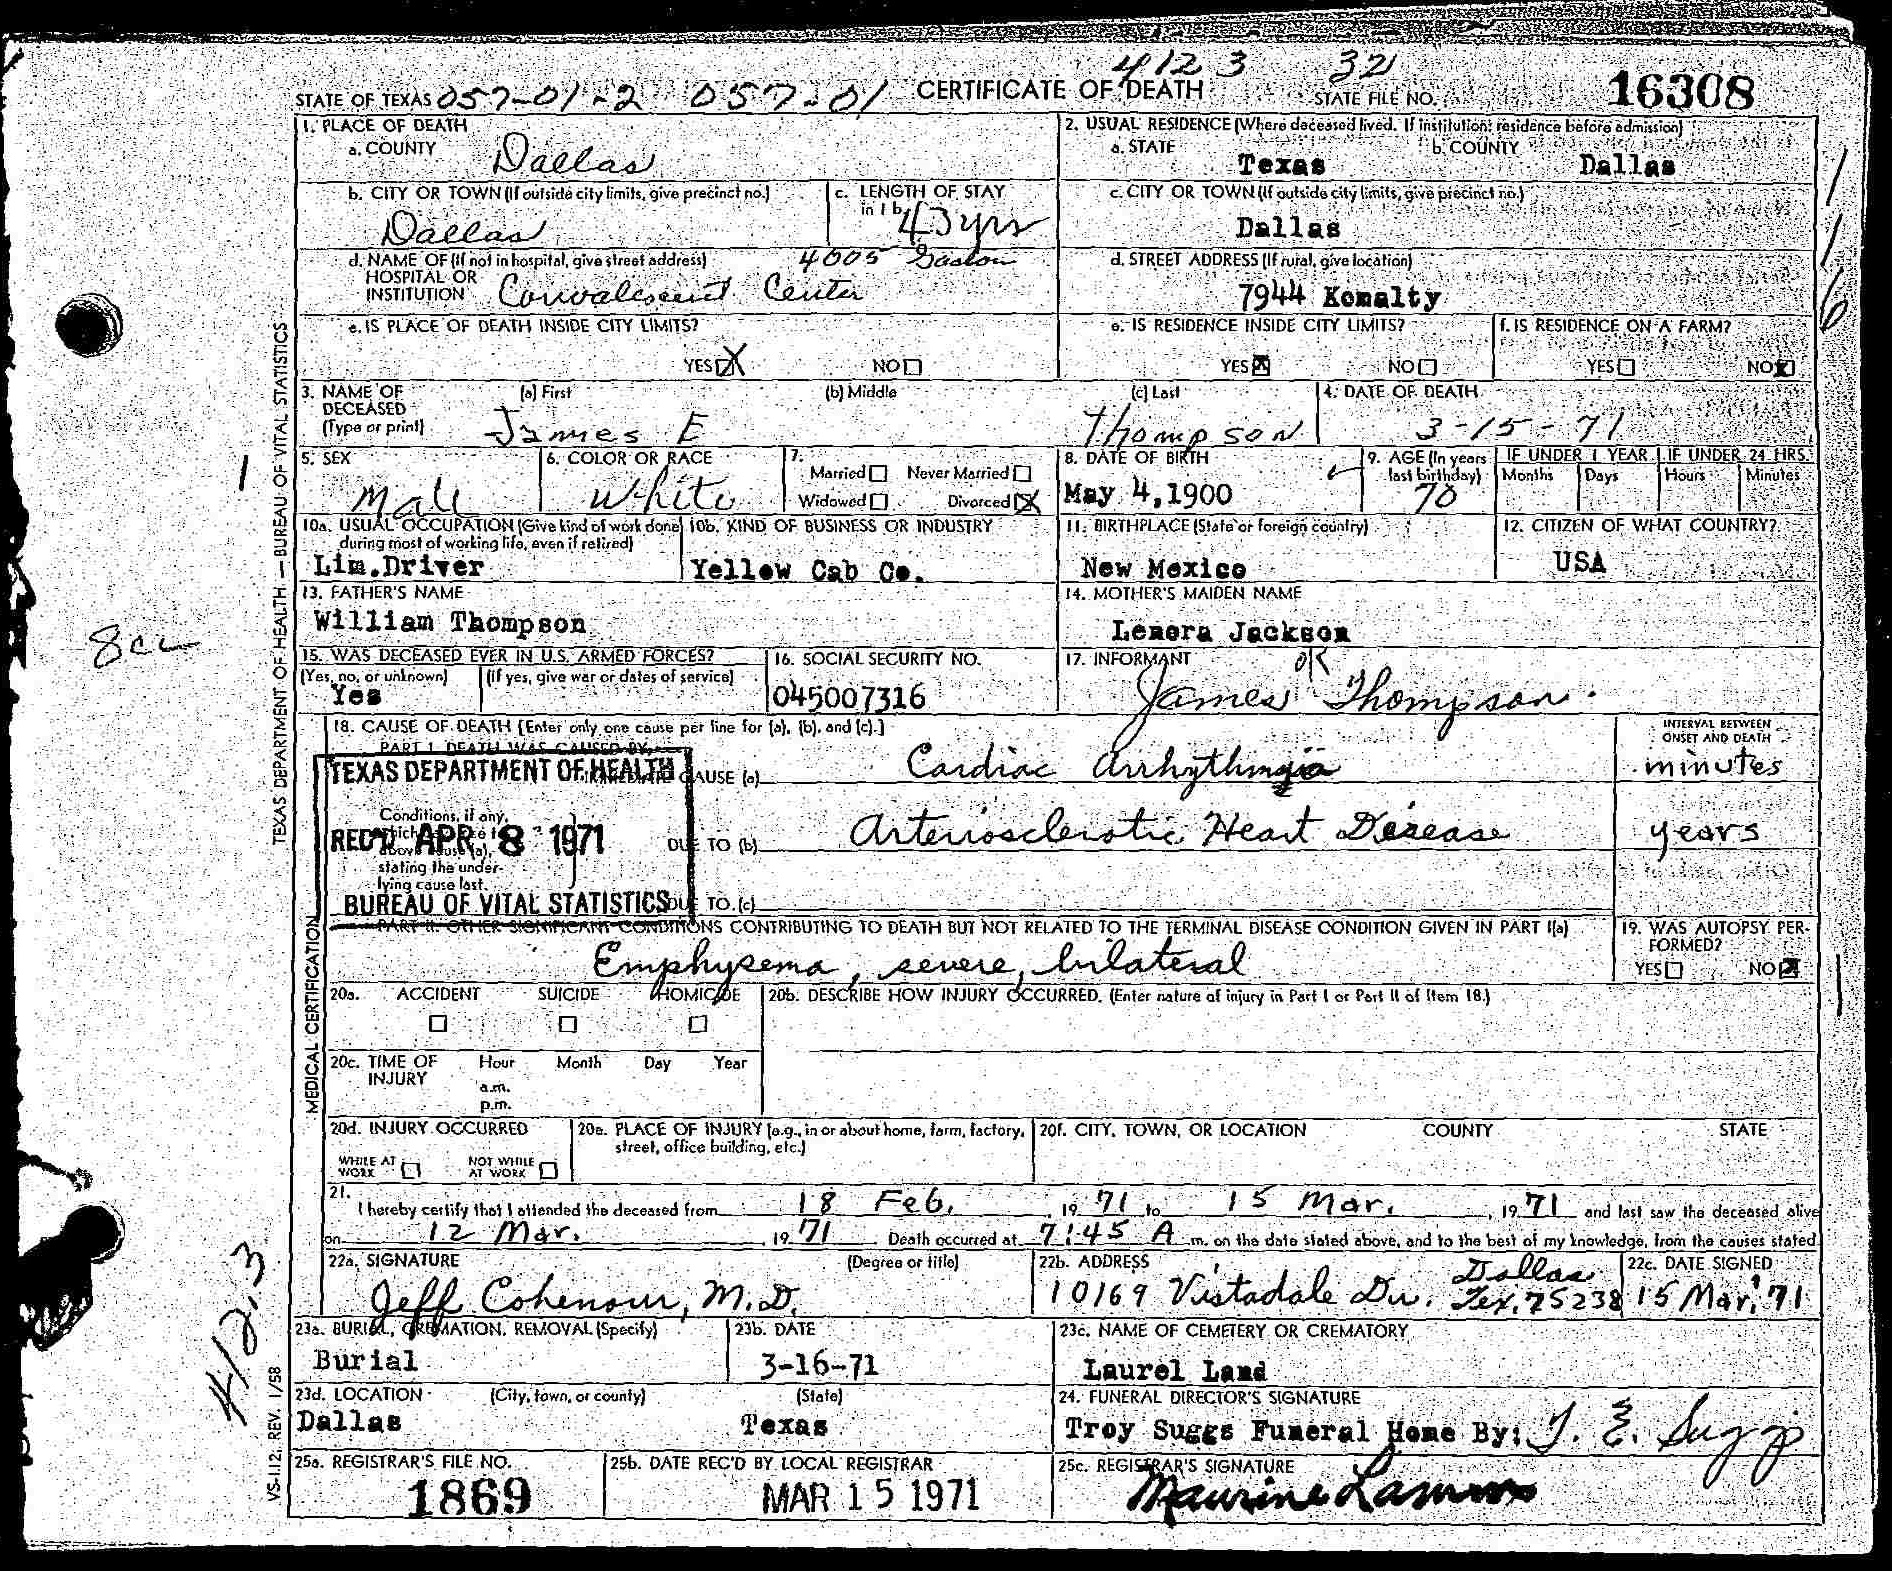 4123 32
STATE OF TEXAS 057-01-2 057-01 CERTIFICATE OF DEATH STATE FILE NO. 16308
1. PLACE OF DEATH
a. COUNTY Dallas
2. USUAL RESIDENCE (Where deceased lived. If institution: residence before admission)
a. STATE Texas b. COUNTY Dallas
b. CITY OR TOWN (If outside city limits, give precinct no.) Dallas
c. LENGTH OF STAY in 1b 43 yrs
c. CITY OR TOWN (If outside city limits, give precinct no.)
Dallas
d. NAME OF (If not in hospital, give street address) 4005 Gaston
HOSPITAL OR
INSTITUTION Convalescent Center
d. STREET ADDRESS (If rural, give location)
7944 Komalty
e. IS PLACE OF DEATH INSIDE CITY LIMITS?
YES X NO
e. IS RESIDENCE INSIDE CITY LIMITS?
YES X NO
f. IS RESIDENCE ON A FARM?
YES NO X
116
3. NAME OF DECEASED (Type or print)
(a) First (b) Middle (c) Last
James E Thompson
4. DATE OF DEATH
3-15-71
1
5. SEX
Male
6. COLOR OR RACE
White
7.
Married Never Married
Widowed Divorced X
8. DATE OF BIRTH
May 4, 1900
9. AGE (In years last birthday)
70
IF UNDER 1 YEAR IF UNDER 24 HRS.
Months Days Hours Minutes
10a. USUAL OCCUPATION (Give kind of work done during most of working life, even if retired)
Lim.Driver
10b. KIND OF BUSINESS OR INDUSTRY
Yellow Cab Co.
11. BIRTHPLACE (State or foreign country)
New Mexico
12. CITIZEN OF WHAT COUNTRY?
USA
13. FATHER'S NAME
William Thompson
14. MOTHER'S MAIDEN NAME
Lenora Jackson
15. WAS DECEASED EVER IN U.S. ARMED FORCES?
(Yes, no, or unknown) (If yes, give war or dates of service)
Yes
16. SOCIAL SECURITY NO.
045007316
17. INFORMANT OK
James Thompson
18. CAUSE OF DEATH [Enter only one cause per line for (a), (b), and (c).]
INTERVAL BETWEEN
ONSET AND DEATH
PART I. DEATH WAS CAUSED BY:
IMMEDIATE CAUSE (a) Cardiac Arrhythmia minutes
Conditions, if any,
which gave rise to
above cause (a),
stating the under-
lying cause last.
DUE TO (b) Arteriosclerotic Heart Disease years
DUE TO (c)
TEXAS DEPARTMENT OF HEALTH
REC'D APR 8 1971
BUREAU OF VITAL STATISTICS
PART II. OTHER SIGNIFICANT CONDITIONS CONTRIBUTING TO DEATH BUT NOT RELATED TO THE TERMINAL DISEASE CONDITION GIVEN IN PART I(a)
Emphysema, severe, bilateral
19. WAS AUTOPSY PER-
FORMED?
YES NO X
20a. ACCIDENT SUICIDE HOMICIDE
20b. DESCRIBE HOW INJURY OCCURRED. (Enter nature of injury in Part I or Part II of Item 18.)
20c. TIME OF INJURY Hour Month Day Year
a.m.
p.m.
20d. INJURY OCCURRED
WHILE AT WORK NOT WHILE AT WORK
20e. PLACE OF INJURY (e.g., in or about home, farm, factory, street, office building, etc.)
20f. CITY, TOWN, OR LOCATION COUNTY STATE
21.
I hereby certify that I attended the deceased from 18 Feb. , 19 71 to 15 Mar. , 19 71 and last saw the deceased alive
on 12 Mar. , 19 71 . Death occurred at 7:45 A m. on the date stated above, and to the best of my knowledge, from the causes stated
22a. SIGNATURE (Degree or title)
Jeff Cohenour, M.D.
22b. ADDRESS
10169 Vistadale Dr. Dallas Tex. 75238
22c. DATE SIGNED
15 Mar. '71
23a. BURIAL, CREMATION, REMOVAL (Specify)
Burial
23b. DATE
3-16-71
23c. NAME OF CEMETERY OR CREMATORY
Laurel Land
23d. LOCATION (City, town, or county) (State)
Dallas Texas
24. FUNERAL DIRECTOR'S SIGNATURE
Troy Suggs Funeral Home By: T. E. Suggs
25a. REGISTRAR'S FILE NO.
1869
25b. DATE REC'D BY LOCAL REGISTRAR
MAR 15 1971
25c. REGISTRAR'S SIGNATURE
Maurine
TEXAS DEPARTMENT OF HEALTH — BUREAU OF VITAL STATISTICS
MEDICAL CERTIFICATION
VS-112, REV. 1/58
412.3